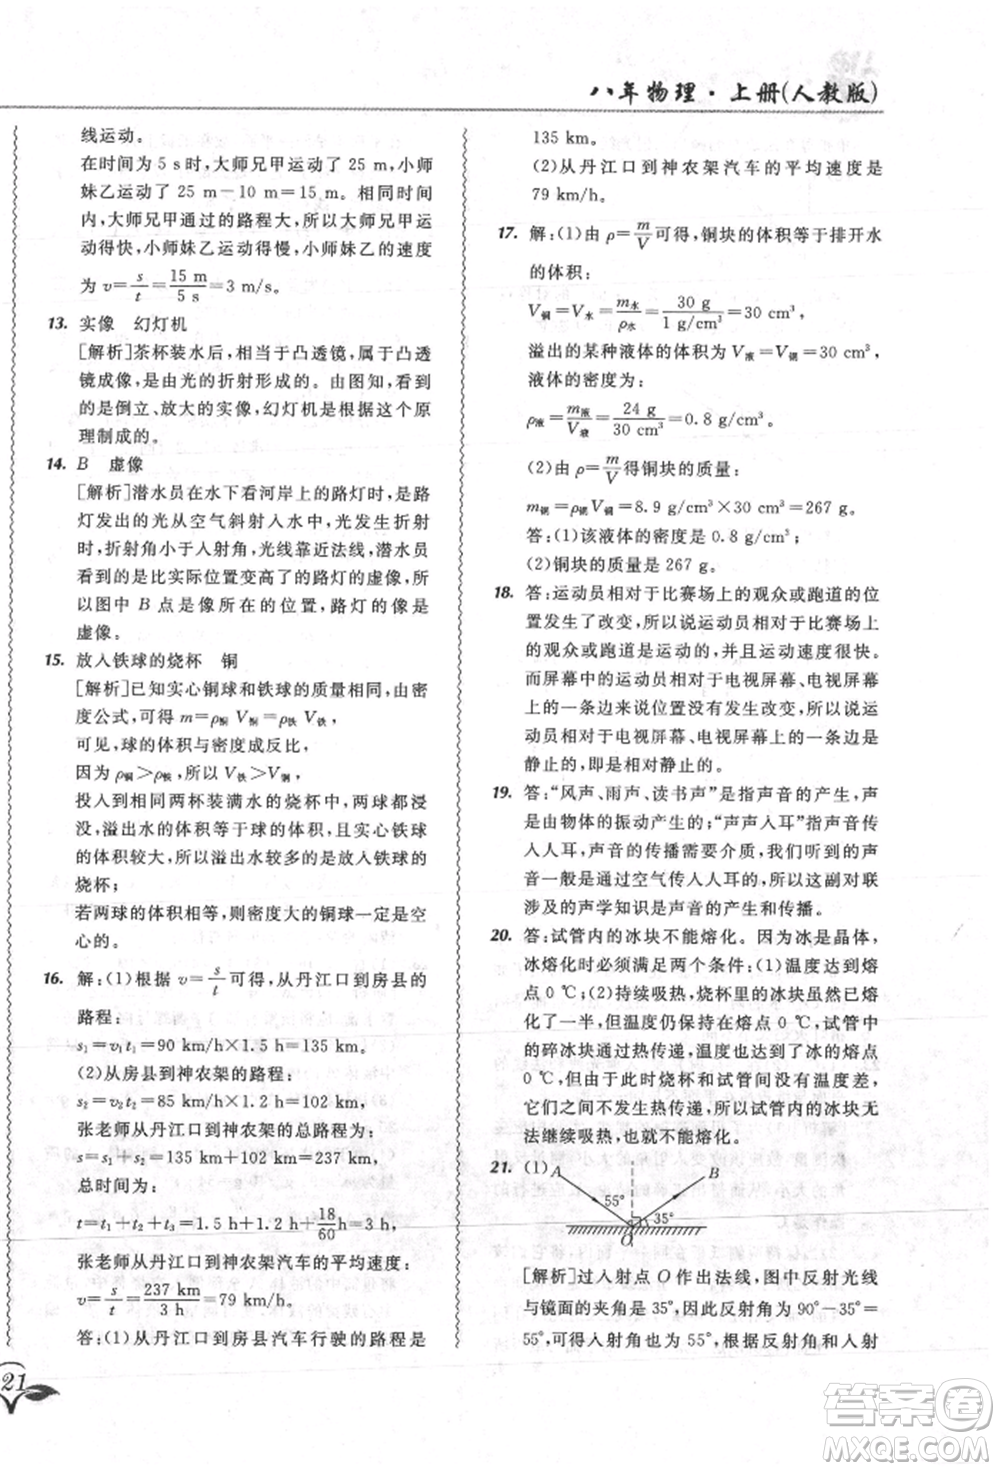 八年物理·上册(人教版)
线运动。
在时间为 5 s时,大师兄甲运动了 25 m,小师
妹乙运动了 25 m－10 m＝15 m。相同时间
内,大师兄甲通过的路程大,所以大师兄甲运
动得快,小师妹乙运动得慢,小师妹乙的速度
为 v＝s/t＝15 m/5 s＝3 m/s。
13. 实像 幻灯机
[解析]茶杯装水后,相当于凸透镜,属于凸透
镜成像,是由光的折射形成的。由图知,看到
的是倒立、放大的实像,幻灯机是根据这个原
理制成的。
14. B 虚像
[解析]潜水员在水下看河岸上的路灯时,是路
灯发出的光从空气斜射入水中,光发生折射
时,折射角小于入射角,光线靠近法线,潜水员
看到的是比实际位置变高了的路灯的虚像,所
以图中 B 点是像所在的位置,路灯的像是
虚像。
15. 放入铁球的烧杯 铜
[解析]已知实心铜球和铁球的质量相同,由密
度公式,可得 m＝ρ铜 V铜＝ρ铁 V铁,
可见,球的体积与密度成反比,
因为 ρ铜＞ρ铁,所以 V铁＞V铜,
投入到相同两杯装满水的烧杯中,两球都浸
没,溢出水的体积等于球的体积,实心铁球的
体积较大,所以溢出水较多的是放入铁球的
烧杯;
若两球的体积相等,则密度大的铜球一定是空
心的。
16. 解:(1)根据 v＝s/t可得,从丹江口到房县的
路程:
s₁＝v₁t₁＝90 km/h×1.5 h＝135 km。
(2)从房县到神农架的路程:
s₂＝v₂t₂＝85 km/h×1.2 h＝102 km,
张老师从丹江口到神农架的总路程为:
s＝s₁＋s₂＝135 km＋102 km＝237 km,
总时间为:
t＝t₁＋t₂＋t₃＝1.5 h＋1.2 h＋18/60 h＝3 h,
张老师从丹江口到神农架汽车的平均速度:
v＝s/t＝237 km/3 h＝79 km/h。
答:(1)从丹江口到房县汽车行驶的路程是
21
135 km。
(2)从丹江口到神农架汽车的平均速度是
79 km/h。
17. 解:(1)由 ρ＝m/V可得,铜块的体积等于排开水
的体积:
V铜＝V水＝m水/ρ水＝30 g/1 g/cm³＝30 cm³,
溢出的某种液体的体积为 V液＝V铜＝30 cm³,
液体的密度为:
ρ液＝m液/V液＝24 g/30 cm³＝0.8 g/cm³。
(2)由 ρ＝m/V得铜块的质量:
m铜＝ρ铜V铜＝8.9 g/cm³×30 cm³＝267 g。
答:(1)该液体的密度为 0.8 g/cm³;
(2)铜块的质量为 267 g。
18. 答:运动员相对于比赛场上的观众或跑道的位置
发生了改变,所以说运动员相对于比赛场上
的观众或跑道是运动的,即感觉运动员跑得很快。
而屏幕中的运动员相对于电视屏幕、电视屏幕
上的一条边来说位置没有发生改变,所以说运
动员相对于电视屏幕、电视屏幕上的一条边是静止
的,即是相对静止的。
19. 答:“风声、雨声、读书声”是指声音的产生,声
是由物体的振动产生的;“声声入耳”指声音传
入人耳,声音的传播需要介质,我们听到的声
音一般是通过空气传入人耳的。所以这副对联
涉及的声学知识是声音的产生和传播。
20. 答:试管内的冰块不能熔化。因为冰是晶体,
冰熔化时必须满足两个条件:(1)温度达到熔
点 0 ℃;(2)持续吸热,烧杯里的冰块虽然熔化
了一半,但温度仍保持在熔点 0 ℃,试管中
的碎冰块通过热传递,温度也能达到冰的熔点
0 ℃,但由于此时烧杯和试管间没有温度差,
它们之间不发生热传递,所以试管内的冰块无
法继续吸热,也就不能熔化。
21. (1)
A
B
55°
35°
O
[解析]过入射点 O 作出法线,图中反射光线
与镜面的夹角为 35°,因此反射角为90°－35°＝
55°,可得入射角也为 55°,根据反射角和入射
答案圈
MXQE.COM